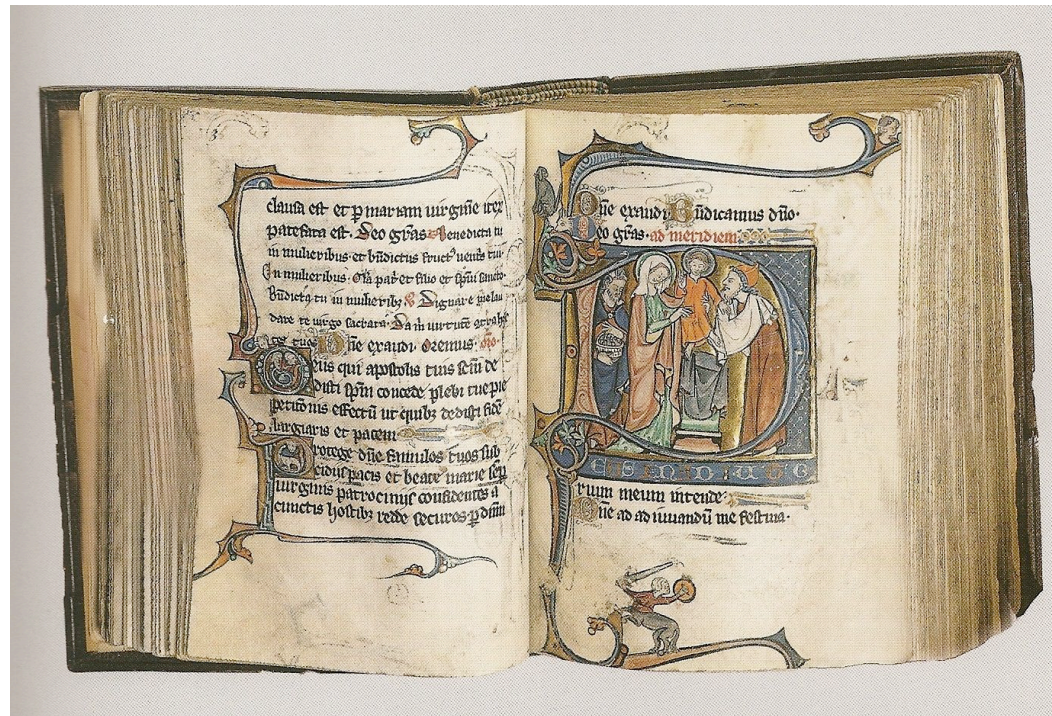 clausa est et p mariam uirgine iter
patefacta est. Deo gras Benedicta tu
in mulieribus. et bndictus fruct uentris tui.
In mulieribus. Gla patri et filio et spiritui sancto.
Bndicta tu in mulieribz Dignare me lau
dare te uirgo sacrata. Da m uirtute
tuos Dne exaudi. Oremus. oro.
Deus qui apostolis tuis scm de
disti spm concede plebi tue pie
peticonis effectu ut quibz dedisti fide
largiaris et pacem
Protege dne famulos tuos sub
cidijs pacis et beate marie semp
uirginis patrocinijs confidentes a
cunctis hostibz redde securos. p dnm
Dne exaudi. Bndicamus dno.
Deo gras. ad meridiem
D
EUS IN ADIUTO
rium meum intende.
Dne ad adiuuandu me festina.